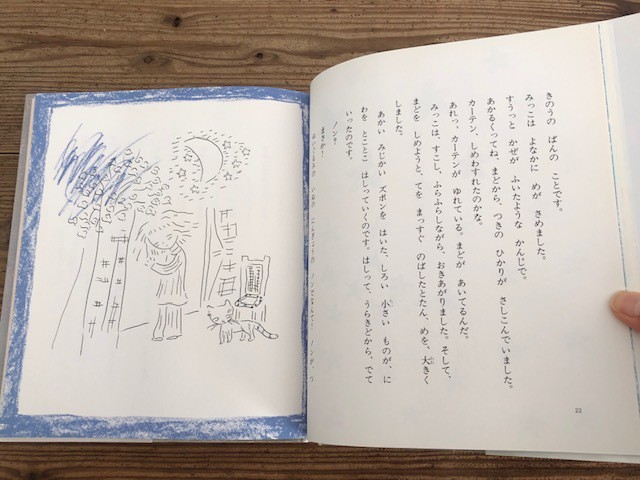 きのうの ばんの ことです。
みっこは よなかに めが さめました。
すうっと かぜが ふいたような かんじで。
あかるくってね、まどから、つきの ひかりが さしこんでいました。
カーテン、しめわすれたのかな。
あれっ、カーテンが ゆれている。まどが あいてるんだ。
みっこは、すこし、ふらふらしながら、おきあがりました。そして、
まどを しめようと、てを まっすぐ のばしたとたん、めを、大きく
しました。
あかい みじかい ズボンを はいた、しろい 小さい ものが、に
わを とことこ はしっていくのです。はしって、うらきどから、でて
いったのです。
ノンッ!
まさか!
22